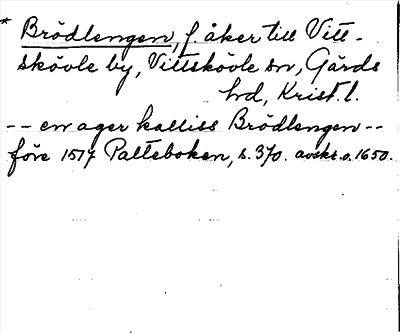 * Brödlengen, f. åker till Vitt-
skövle by, Vittskövle sn, Gärds
hd, Krist. l.
-- en ager kalliss Brödlengen --
före 1517 Palteboken, s. 370. avskr. o. 1650.